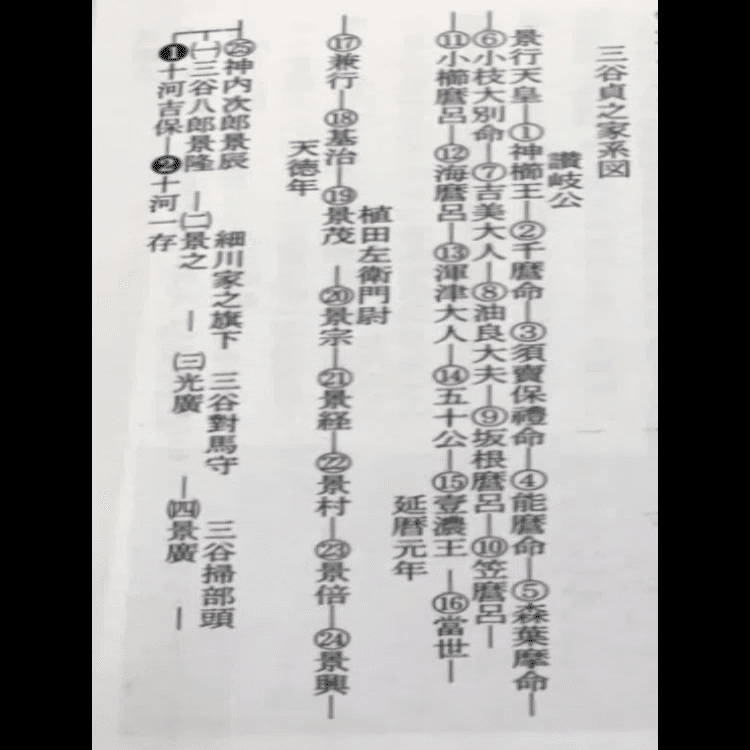 三谷貞之家系図
讃岐公
景行天皇―①神櫛王―②千麿命―③須賣保禮命―④能麿命―⑤森葉摩命―
⑥小枝大別命―⑦吉美大人―⑧油良大夫―⑨坂根麿呂―⑩笠麿呂―
―⑪小櫛麿呂―⑫海麿呂―⑬渾津大人―⑭五十公―⑮壹濃王―⑯當世―
延暦元年
植田左衛門尉
―⑰兼行―⑱基治―⑲景茂―⑳景宗―㉑景経―㉒景村―㉓景倍―㉔景興―
天徳年
㉕神内次郎景辰
細川家之旗下 三谷對馬守 三谷掃部頭
㈠三谷八郎景隆―㈡景之―㈢光廣―㈣景廣―
❶十河吉保―❷十河一存